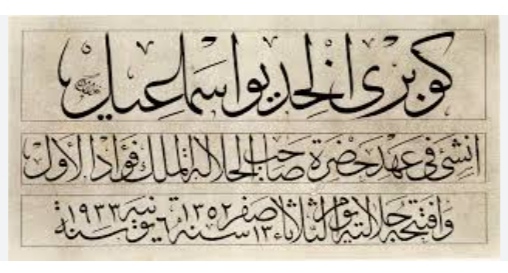 كوبرى الخديو اسماعيل
انشئ فى عهد حضرة صاحب الجلالة الملك فؤاد الأول
وافتتحه جلالته يوم الثلاثاء ١٣ صفر سنة ١٣٥٢ ٦ يونيه سنة ١٩٣٣